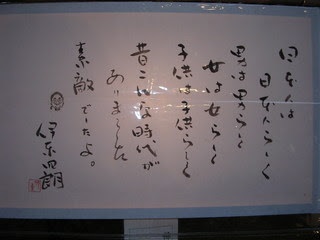 日本は
日本らしく
男は男らしく
女は女らしく
子供は子供らしく
昔こんな時代が
ありました
素敵でしたよ。